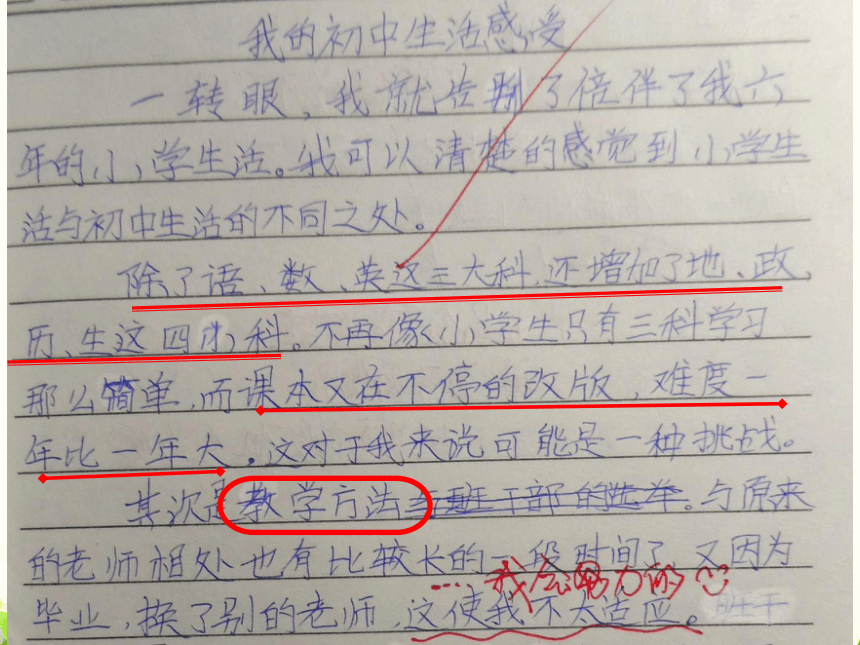 我的初中生活感受
一转眼,我就告别了陪伴了我六
年的小学生活。我可以清楚的感觉到小学生
活与初中生活的不同之处。
除了语、数、英这三大科,还增加了地、政、
历、生这四小科。不再像小学生只有三科学习
那么简单,而课本又在不停的改版,难度一
年比一年大,这对于我来说可能是一种挑战。
其次是教学方法与班干部的选举。与原来
的老师相处也有比较长的一段时间了,又因为
…我会努力的
毕业,换了别的老师,这使我不太适应。班干